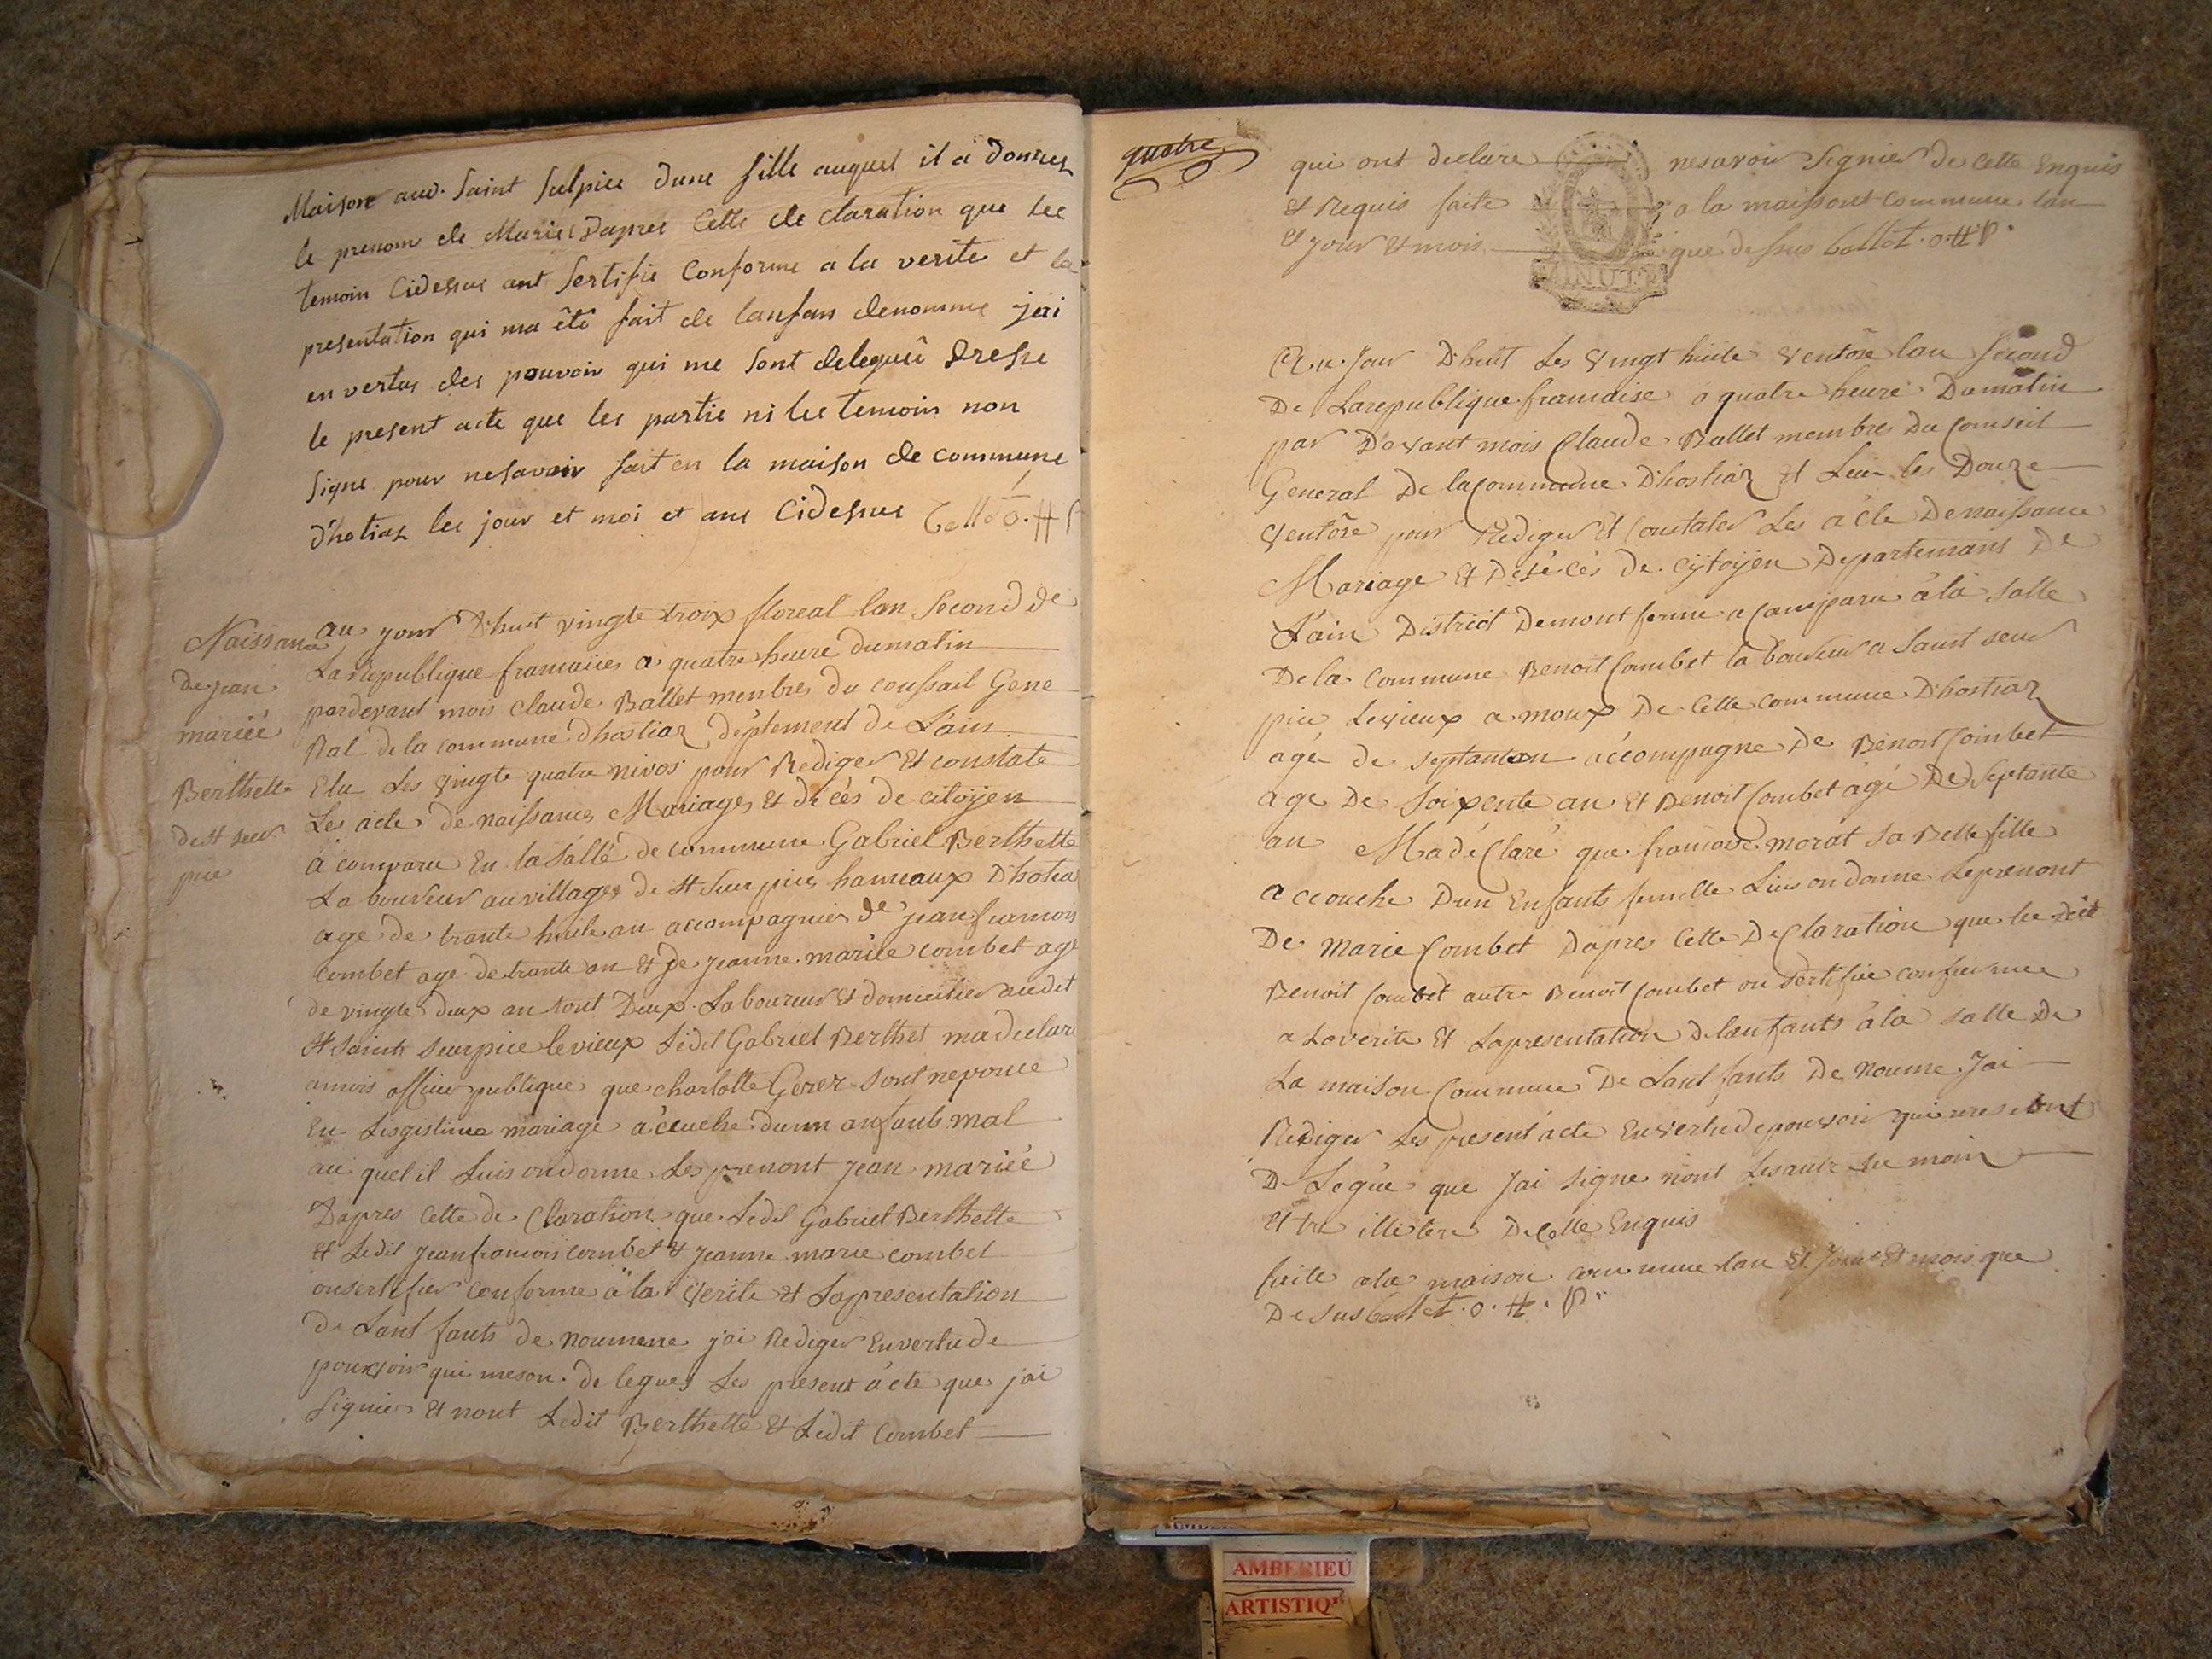 Maison aud. Saint Sulpice dune fille auquel il a donnez
le prenom de Marie Dapres Cette de claration que lee
temoin Cidesue ant Sertifie Conforme a la verite et la
presentation qui ma êtê fait de lanfan denomme jai
en vertus des pouvoir qui me Sont deleguê Dresse
le present acte que les partie ni lee temoin non
Signe pour nesavoir fait en la maison de commune
d'hotiaz les jour et moi et ans Cidesue
Naissance
de jean
mariéé
Berthette
de st seur
pice
au jour D'huit vingte troix floreal lan Second de
La Republique francaises a quatre heure dumatin
pardevant mois Claude Ballet menbres du conssail Gene
Ral de la commune dhostiaz déptement de L'ain
Elu Les vingte quatre nivos pour Rediger Et constate
Les acte de naissances Mariages et de cés de citoyen
á comparu En la sallé de commune Gabriel Berthette
La boureur au villages de St Seur pice hameaux D'hotia
age de trante huite an accompagnier de jean francois
Combet age de trante an Et de jeanne mariée combet age
de vingte deux an tout Deux Laboureur Et domicilier audit
St sainte seurpice levieux Ledit Gabriel Berthet ma declare
amois officier publique que charlotte Gerez sont nepouce
En Lisgistime mariage á ceuche dunn anfants mal
au quel il Luis ondonne Les prenont jean mariéé
Dapres Cette de Claration que Ledit Gabriel Berthette
et Ledit jean francois combet et jeanne marie combet
onsertifier conforme á la verite et Lapresentation
de Lant fants de noumenne jai Rediger En vertu de
pourvoir qui meson de legues Les présent ácte que jai
Signier Et nont Ledit Berthette Et Ledit Combet
quatre
qui ont declare nesavoir Signier de Cette Enquis
Et Requis faite a la maissont Commune lan
Et jour Et mois que dessus ballet .o.H P.
MINUTE
Au Jour D'huit Les Vingt huite Ventôse lan Second
De Larepublique francaise á quatre heure Dumatin
par Devant mois Claude Ballet membres Du Conseil
General De lacommune D'hostiaz Et Leu les Douze
Ventôse pour Rediger Et Constater Les ácte Denaissance
Mariage Et Desé cés de Cytoyen Departemans De
L'ain District Demont ferme a Comparu á la Salle
De la Commune Benoit Combet la boureur a Saint seur
pice Levieux a moux De Cette Commune D'hostiaz
agé de septant an áccompagne De Benoit Combet
age De Soixente an Et Benoit Combet ágé De Septante
an Madé Claré que francoise morat sa Belle fille
accouche Dun Enfants femelle Luis ondonne Leprenont
De Marie Combet Dapres Cette De Claration que le Dit
Benoit Combet autre Benoit Combet on Sertifie confirmee
a Laverite Et Lapresentation Delenfants á la salle De
La maison Commune De Lant fants De noume Jai
Rediger Les present ácte En vertu de pouvoir qui me sont
De Legúé que jai signe nont Les autre te moin
Et tre illetere De Cette Enquis
faite ala maison commune lan Et Jour Et mois que
Desus ballet .o. H. P.
AMBERIEU
ARTISTIQ